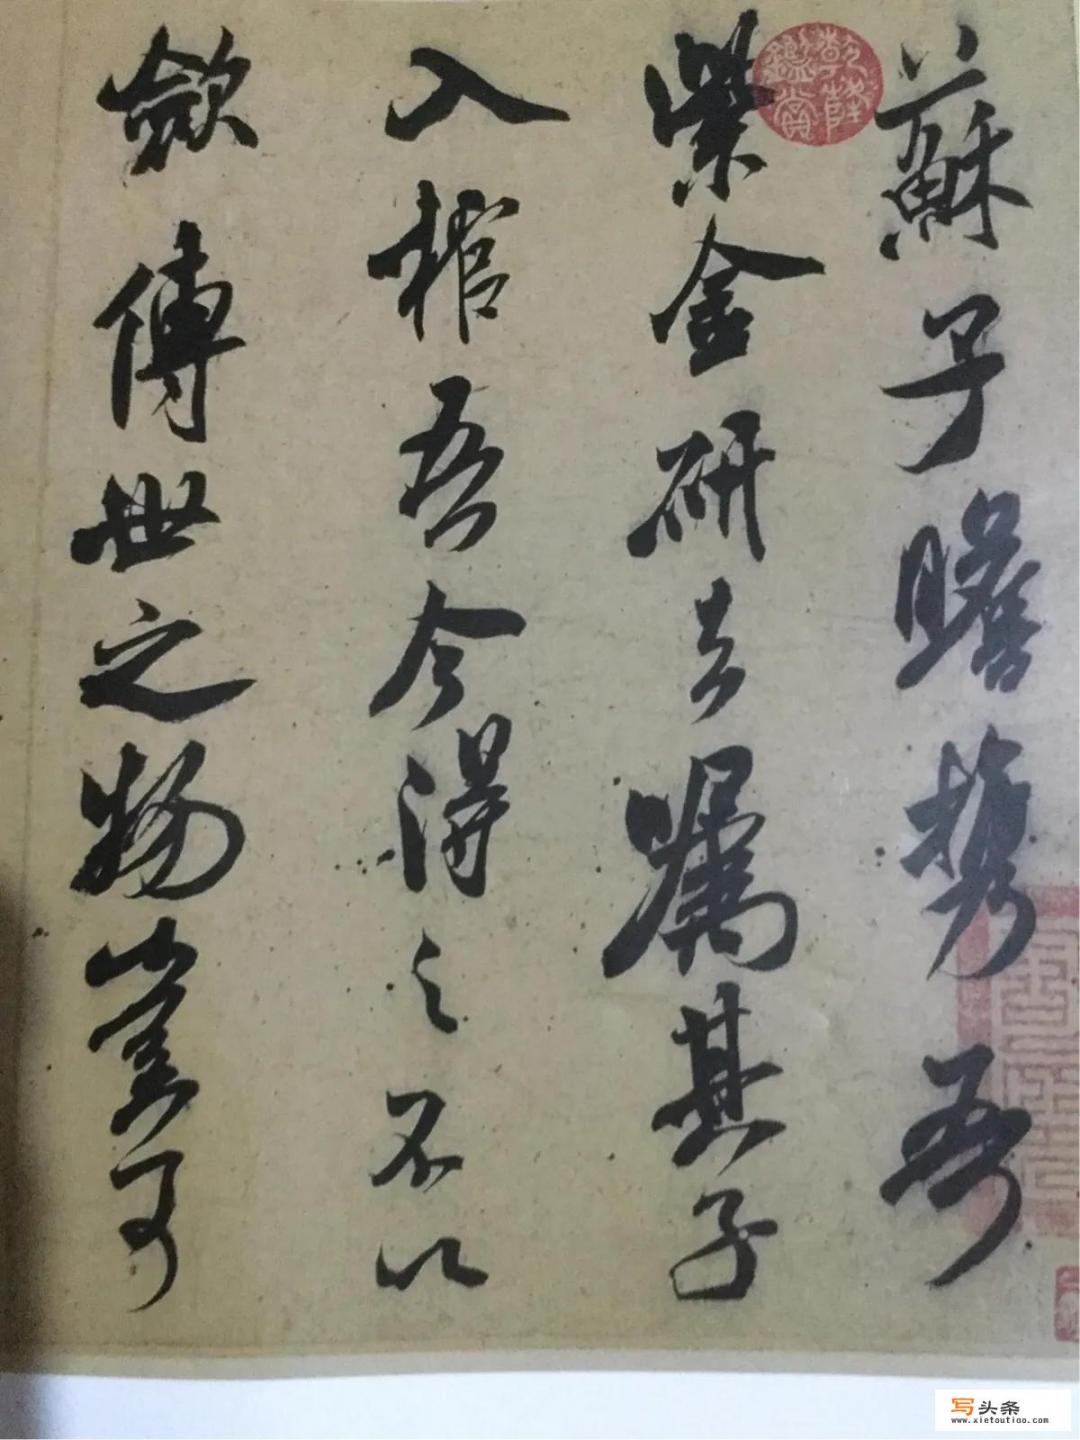 蘇子瞻攜吾
紫金研去囑其子
入棺吾今得之不以
歛傳世之物豈可
乾隆鑑賞
写头条
www.xietoutiao.com